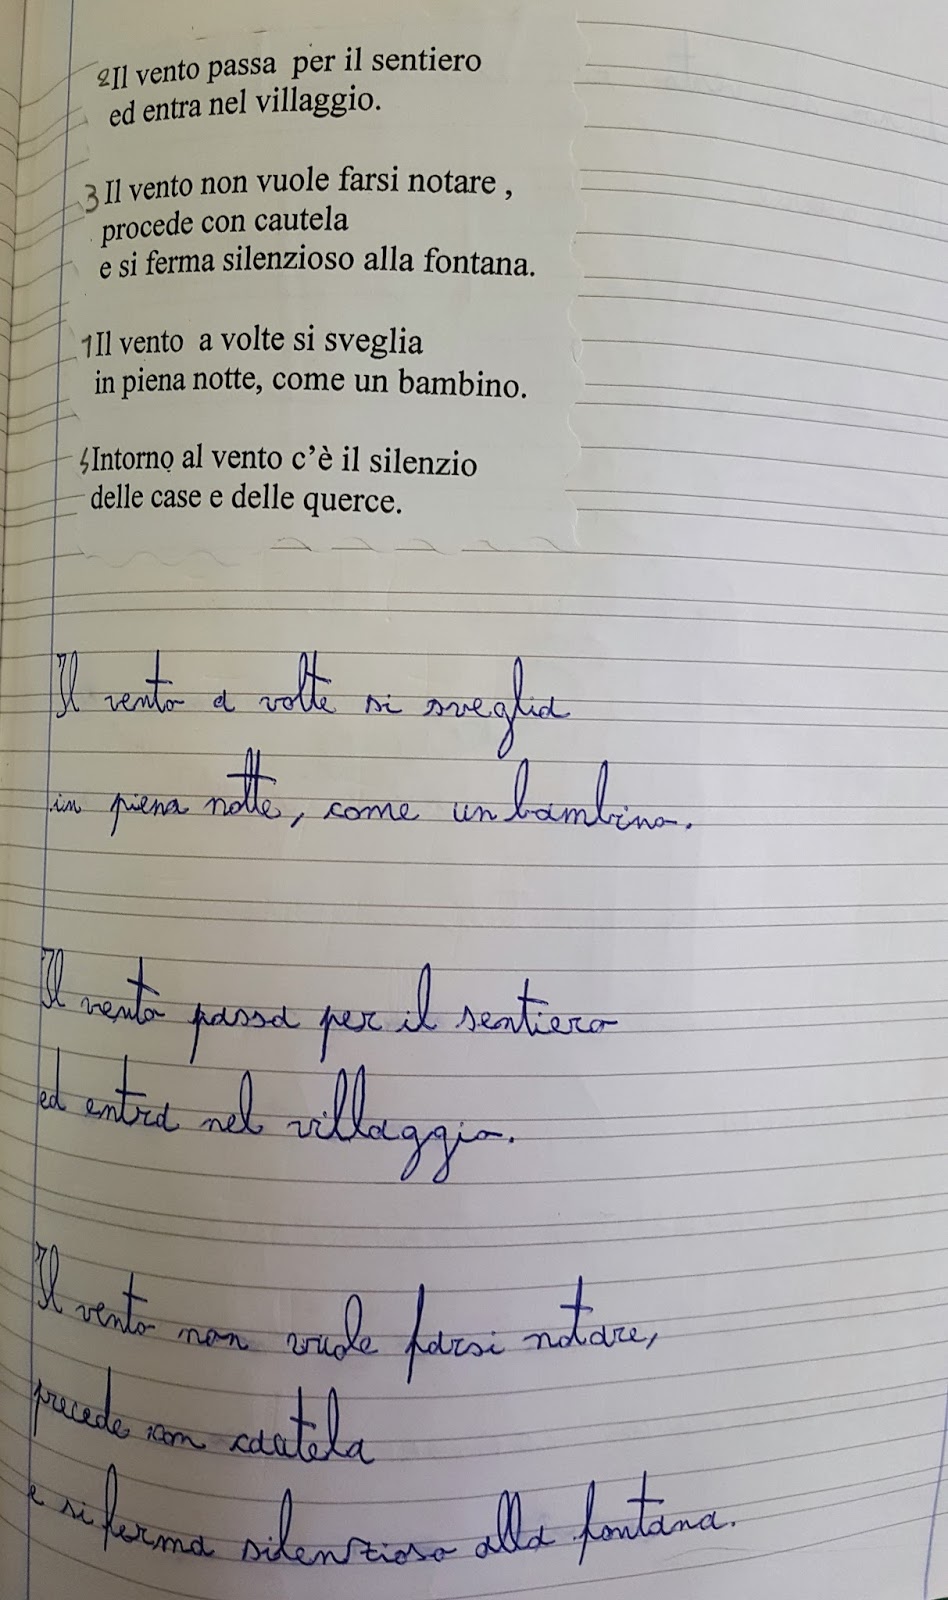 2 Il vento passa per il sentiero
ed entra nel villaggio.
3 Il vento non vuole farsi notare ,
procede con cautela
e si ferma silenzioso alla fontana.
1 Il vento a volte si sveglia
in piena notte, come un bambino.
4 Intorno al vento c'è il silenzio
delle case e delle querce.
Il vento a volte si sveglia
in piena notte, come un bambino.
Il vento passa per il sentiero
ed entra nel villaggio.
Il vento non vuole farsi notare,
precede con cautela
e si ferma silenzioso alla fontana.